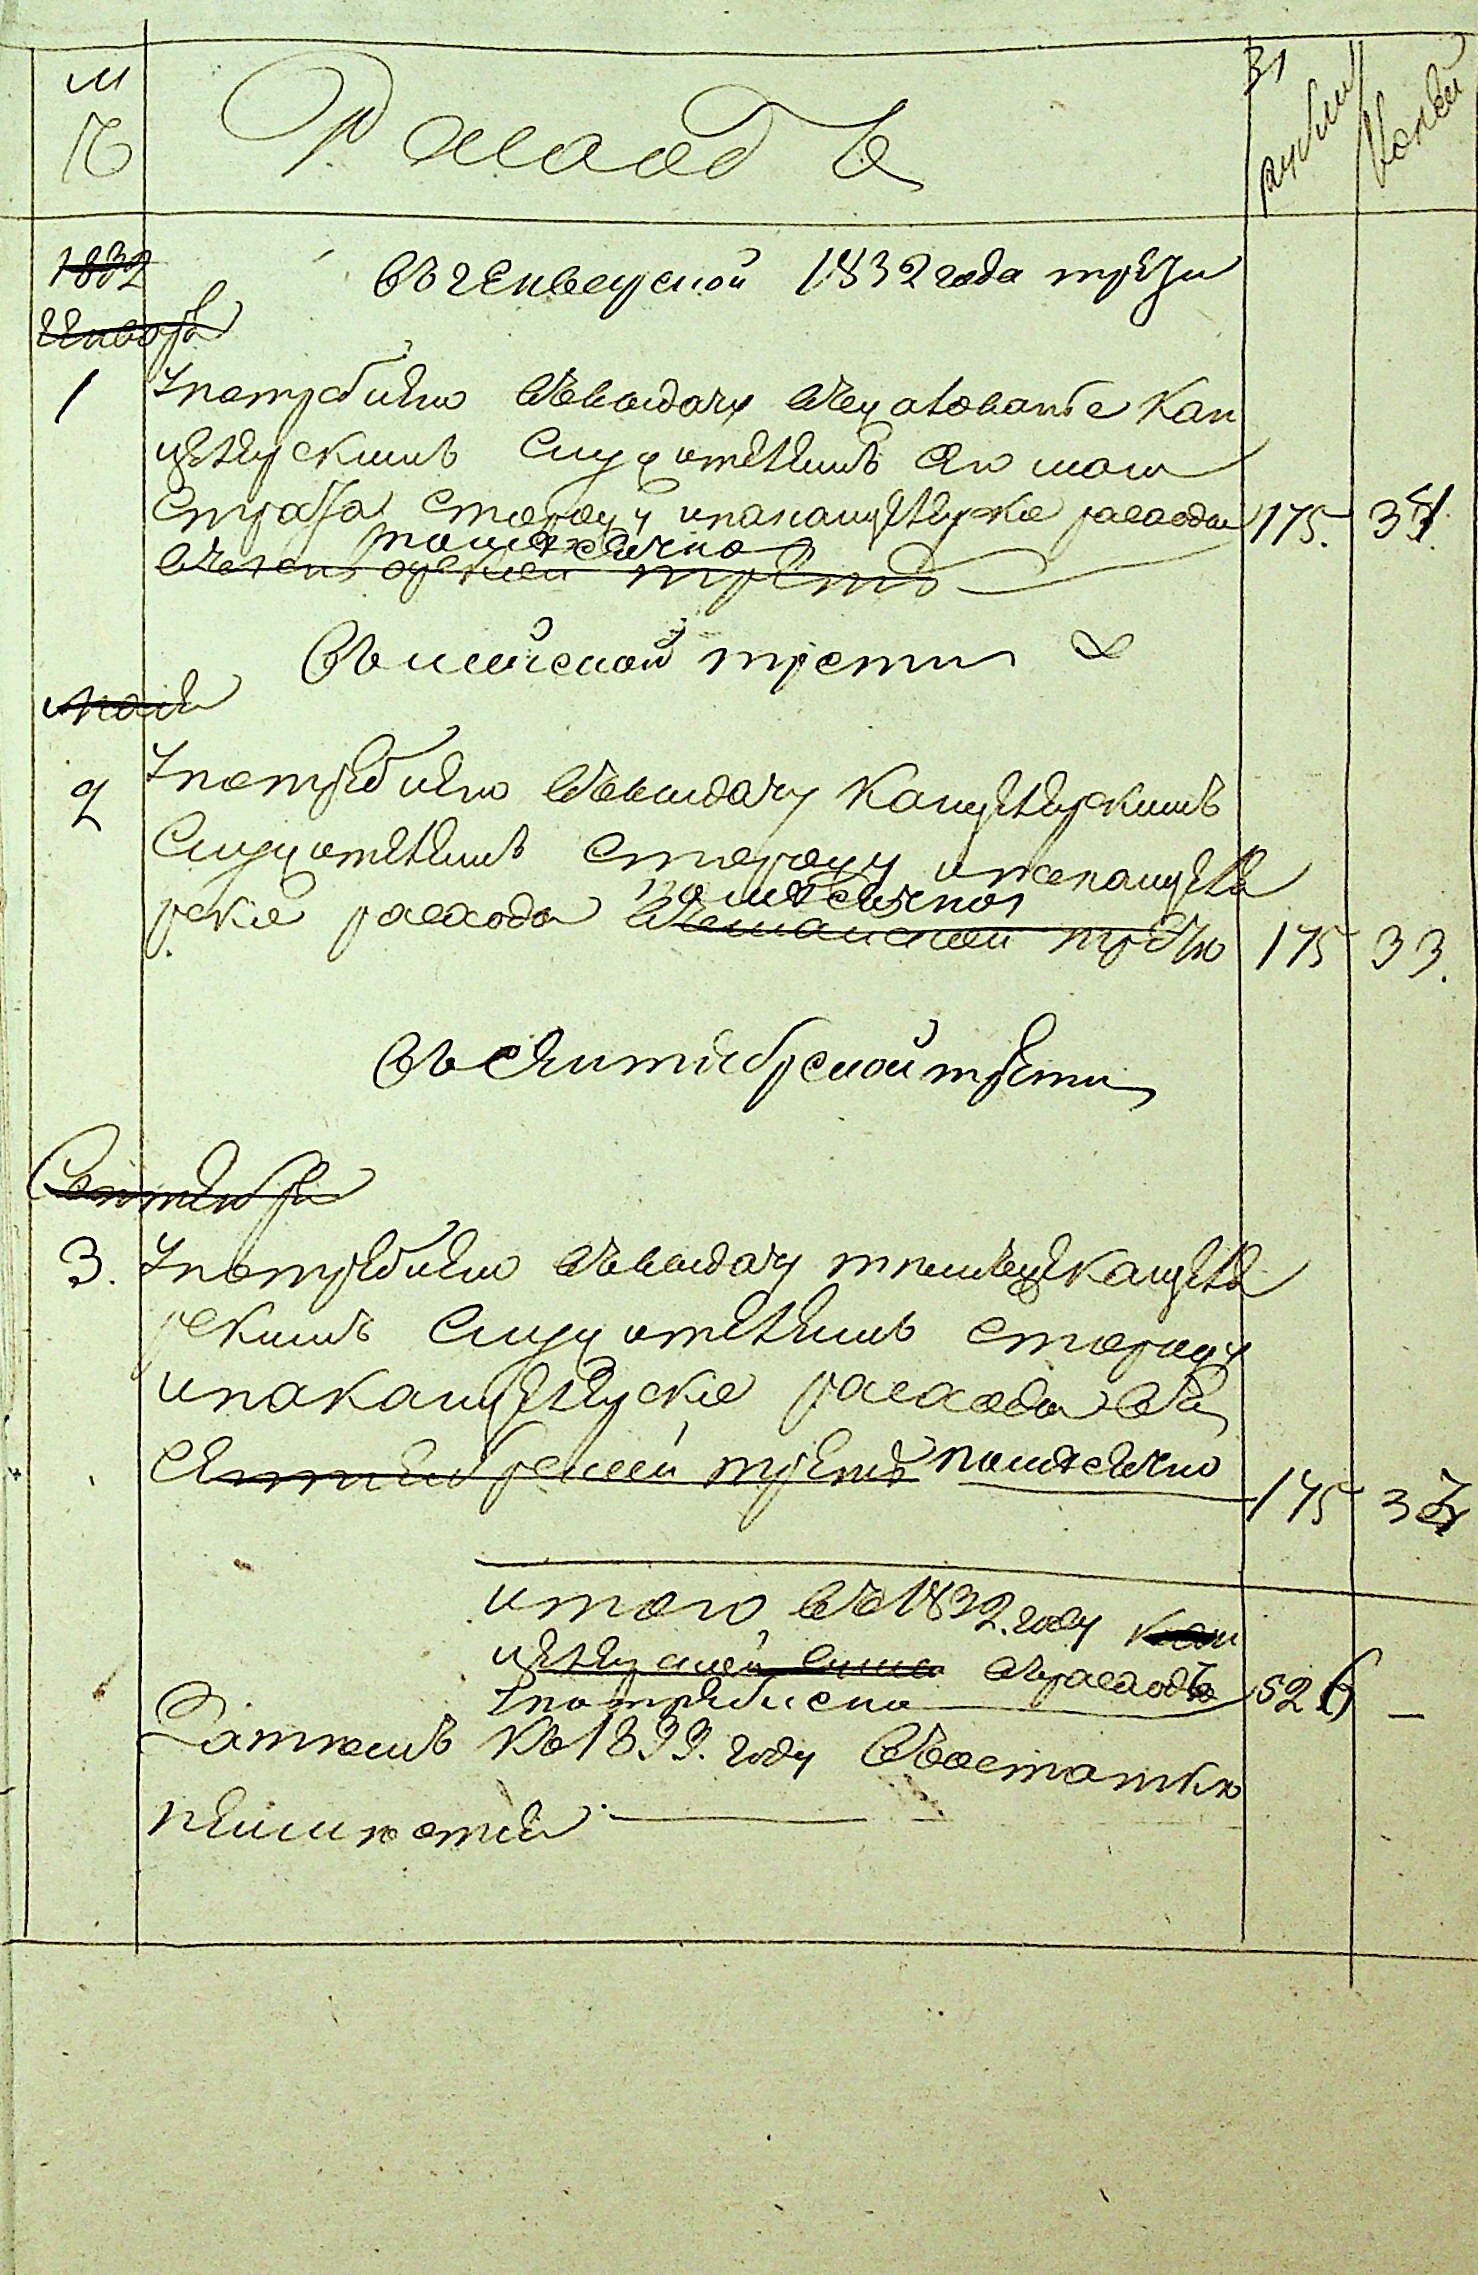 31
М
№
Расходъ
рубли
копей
1832
въ генварской 1832 года трети
Генваря
1
Употреблено въ выдачу въ жалованье кан
целярскимъ служителямъ сего маги
страта сторожу и на канцелярские расходы
175.
помесячно
въ генварской треть
въ майской трети
Мая
2
Употреблено въ выдачу канцелярскимъ
служителямъ сторожу и на канцеля
помесячно
рские расходы въ майской третью
175
33.
въ сентябрской трети
Сентября
3.
Употреблено въ выдачу канцеля
рскимъ служителямъ сторожу
и на канцелярские расходы въ
сентябрской треть помесячно
175
итого въ 1832. году кан
целярской суммы въ расходъ
употреблено
526
—
Затемъ къ 1833. году въ остатке
неимеется